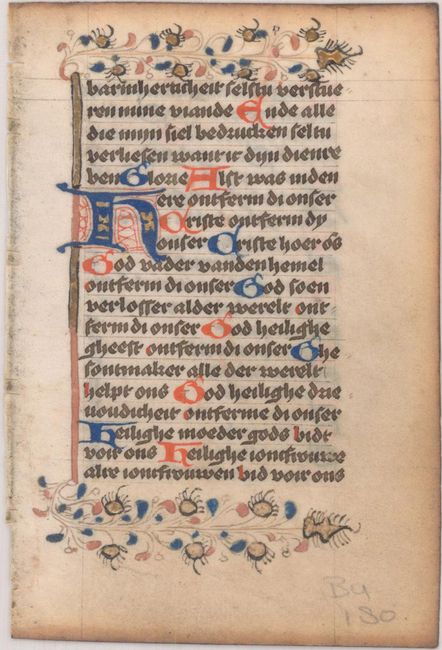 barmherticheit selstu verstue
ren mine viande Ende alle
die mijn siel bedrucken seltu
verliesen want ic dijn dienre
ben Glorie Alst was inden
Here ontferm di onser
Criste ontferm dy
onser Criste hoer ōs
God vader vanden hemel
ontferm di onser God soen
verlosser alder werelt ont
ferm di onser God heilighe
gheest ontferm di onser Ghe
sontmaker alle der werelt
helpt ons God heilighe drie
voudicheit ontferme di onser
Heilighe moeder gods bidt
voir ons Heilighe ioncfrouwe
alre ioncfrouwen bid voir ons
B4
180